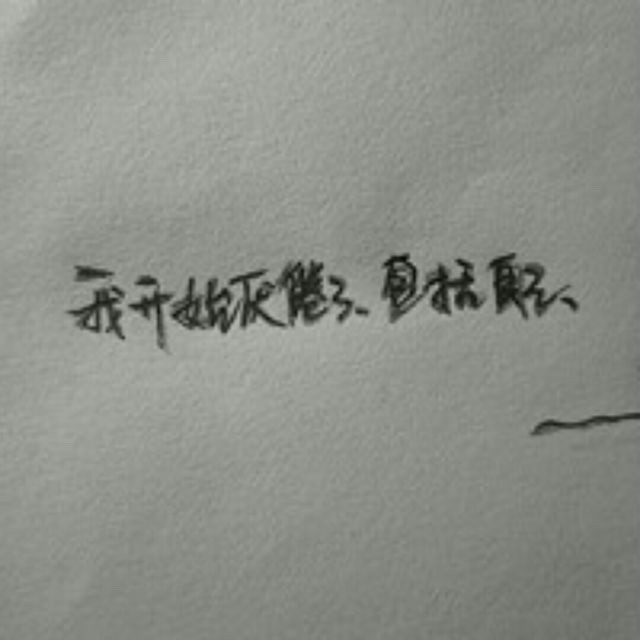 我开始厌倦了、包括自己、